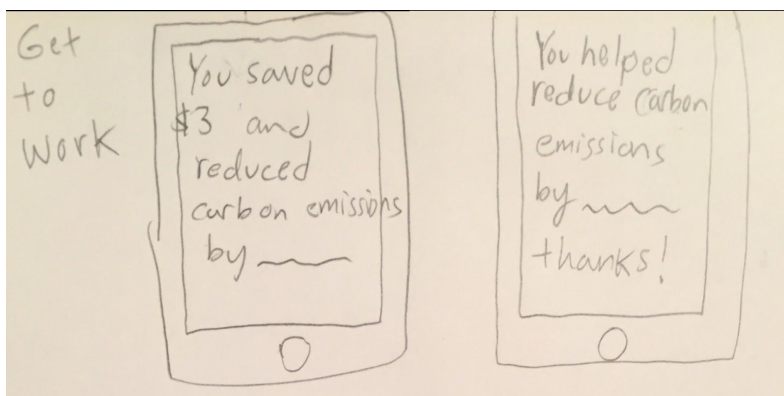 Get
to
Work
You saved
$3 and
reduced
carbon emissions
by
You helped
reduce carbon
emissions
by
thanks!